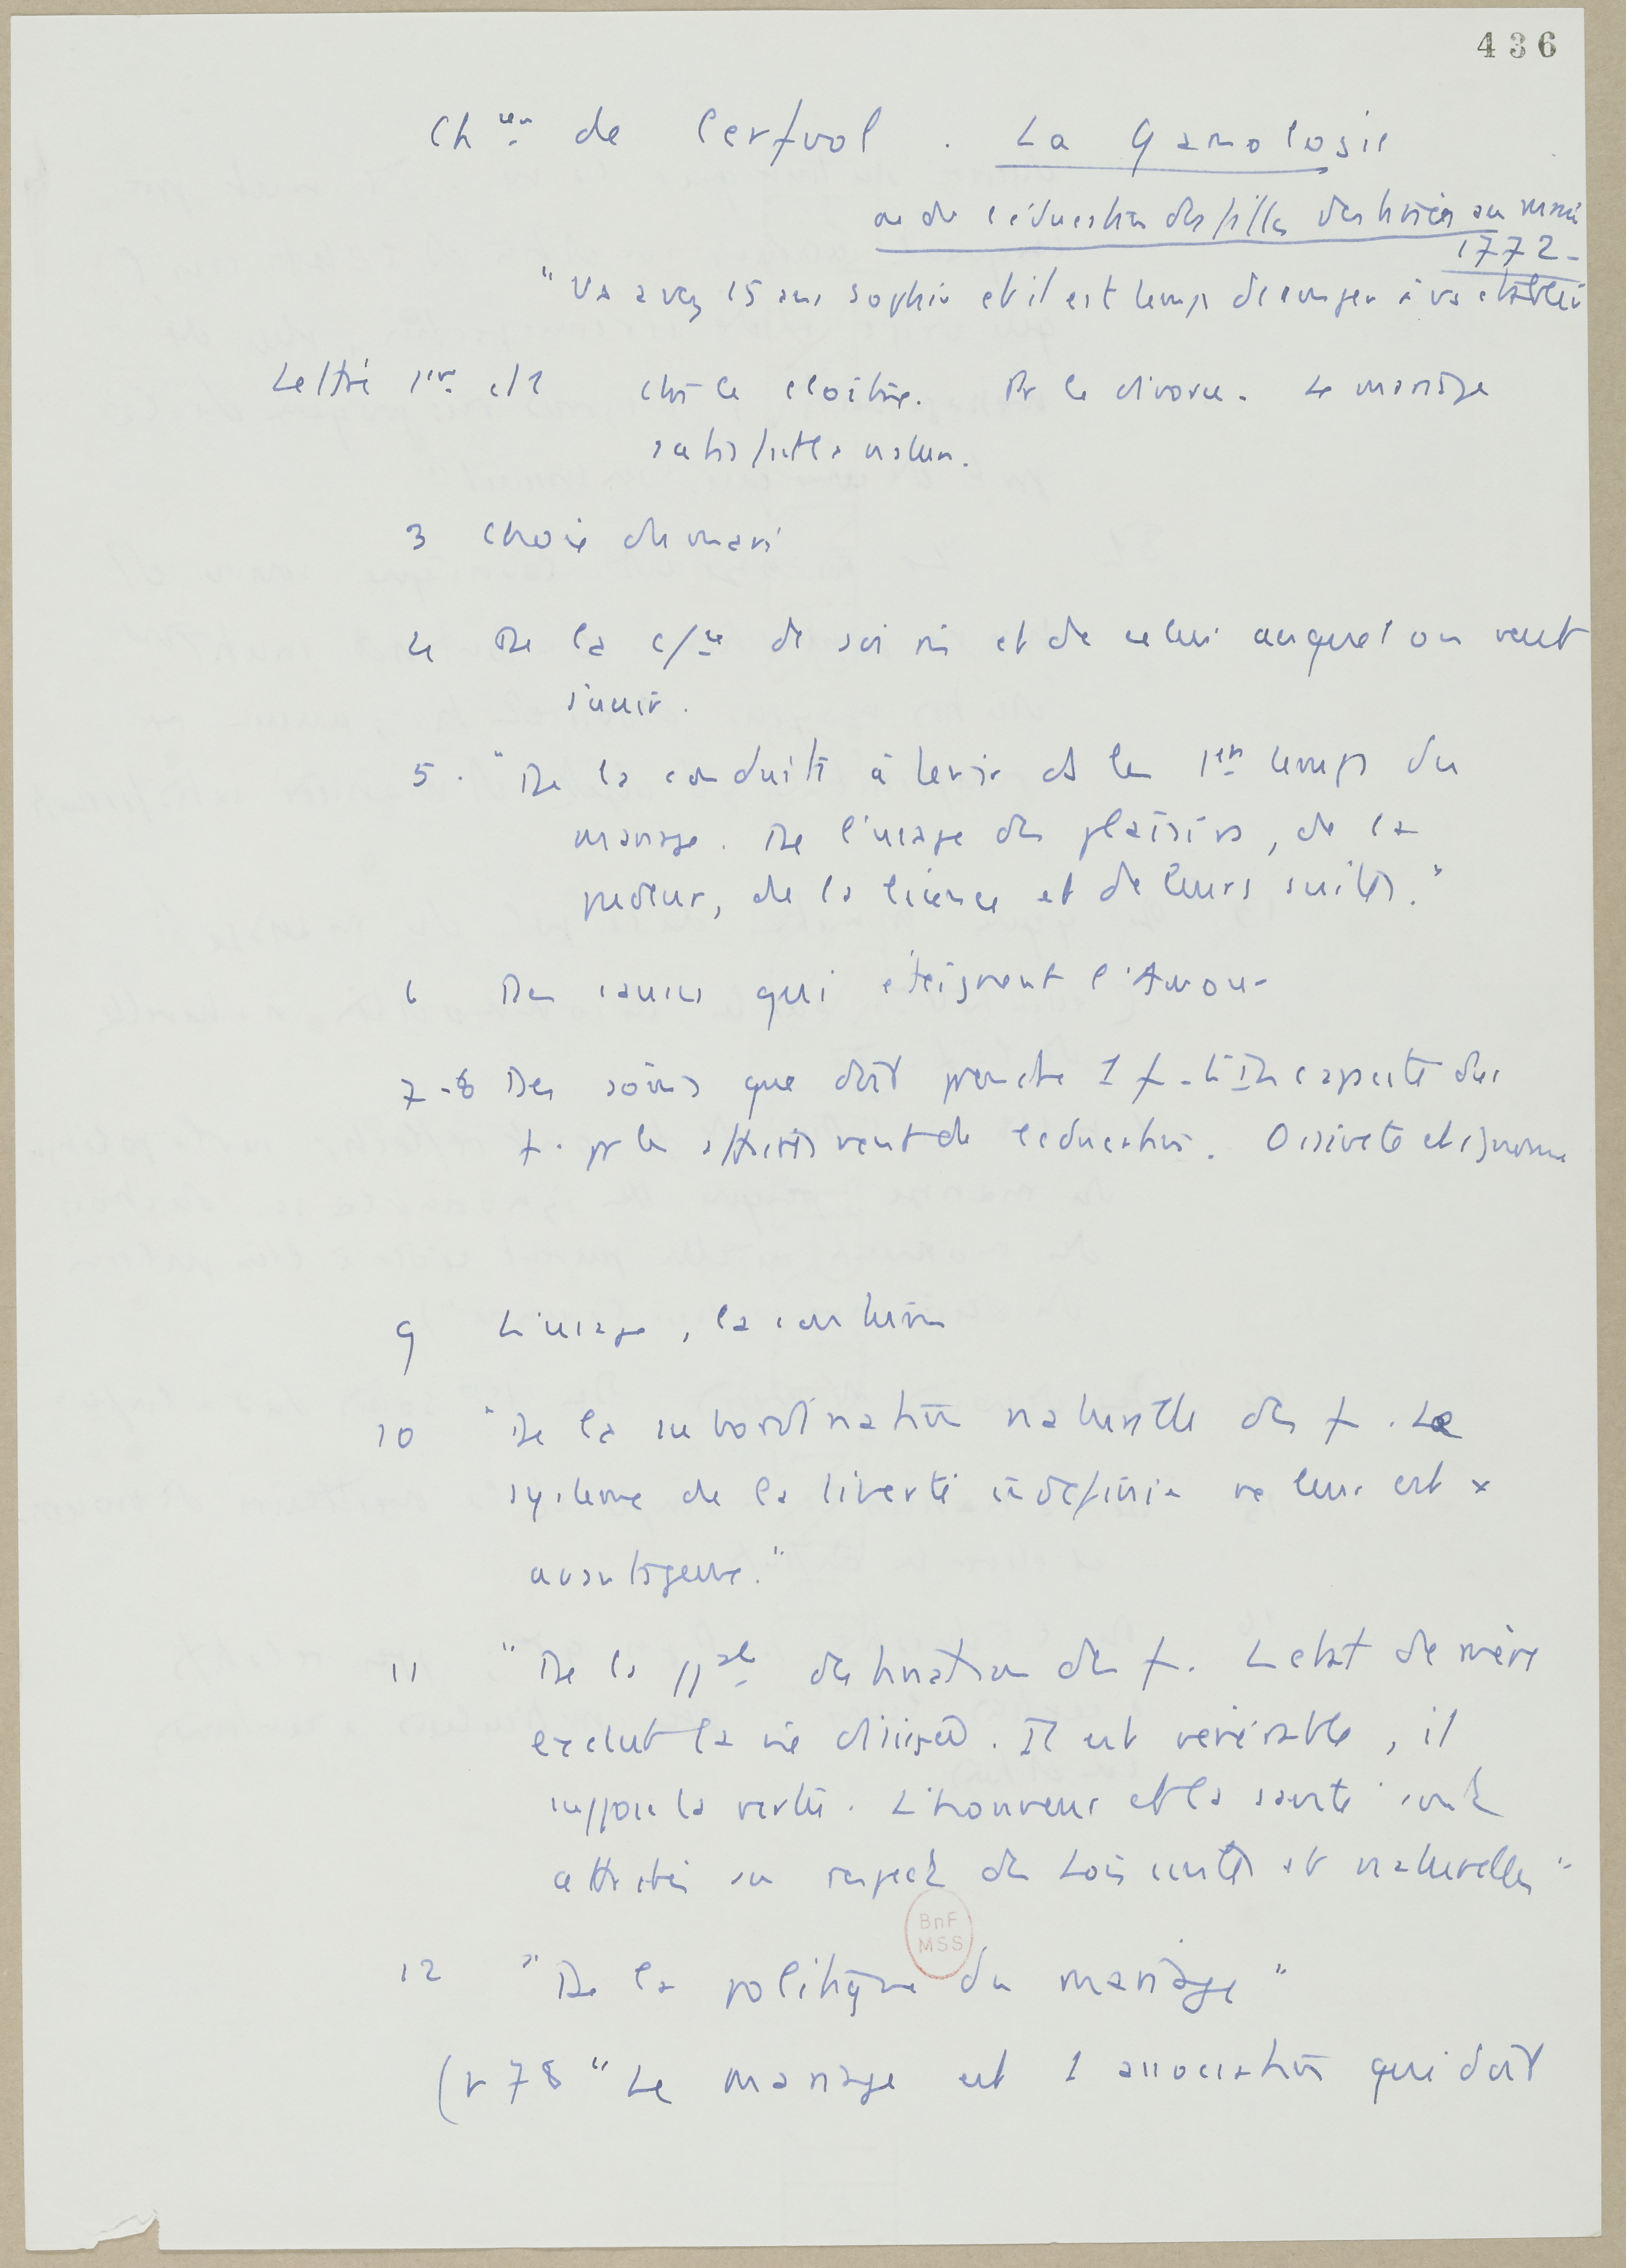 436
Ch er de Cerfvol . La Gamologie
ou de l'éducation des filles destinées au mariage
1772 -
"Vs avez 15 ans Sophie et il est temps de songer à vs établir
Lettre 1er et 2 ctre le cloître. Pr le divorce. Le mariage
satisfait la nature.
3 Choix du mari
4 De la c/ce de soi m et de celui auquel on veut
s'unir.
5. "De la conduite à tenir ds les 1ers temps du
mariage. De l'usage des plaisirs, de la
pudeur, de la licence et de leurs suites."
6 Des causes qui éteignent l'Amour
7-8 Des soins que doit prendre 1 f. L'Incapacité des
f. pr les affaires vient de l'éducation. Oisiveté et ignorance
9 L'usage, la coutume
10 "De la subordination naturelle des f. Le
système de la liberté indéfinie ne leur est x
avantageuse."
11 "De la ppale destination des f. L'etat de mère
exclut la vie dissipée. Il est vénérable, il
suppose la vertu. L'honneur et la santé sont
attachés au respect des Lois civiles et naturelles"
BnF
MSS
12 "De la politique du mariage"
(p 78 "Le mariage est 1 association qui doit